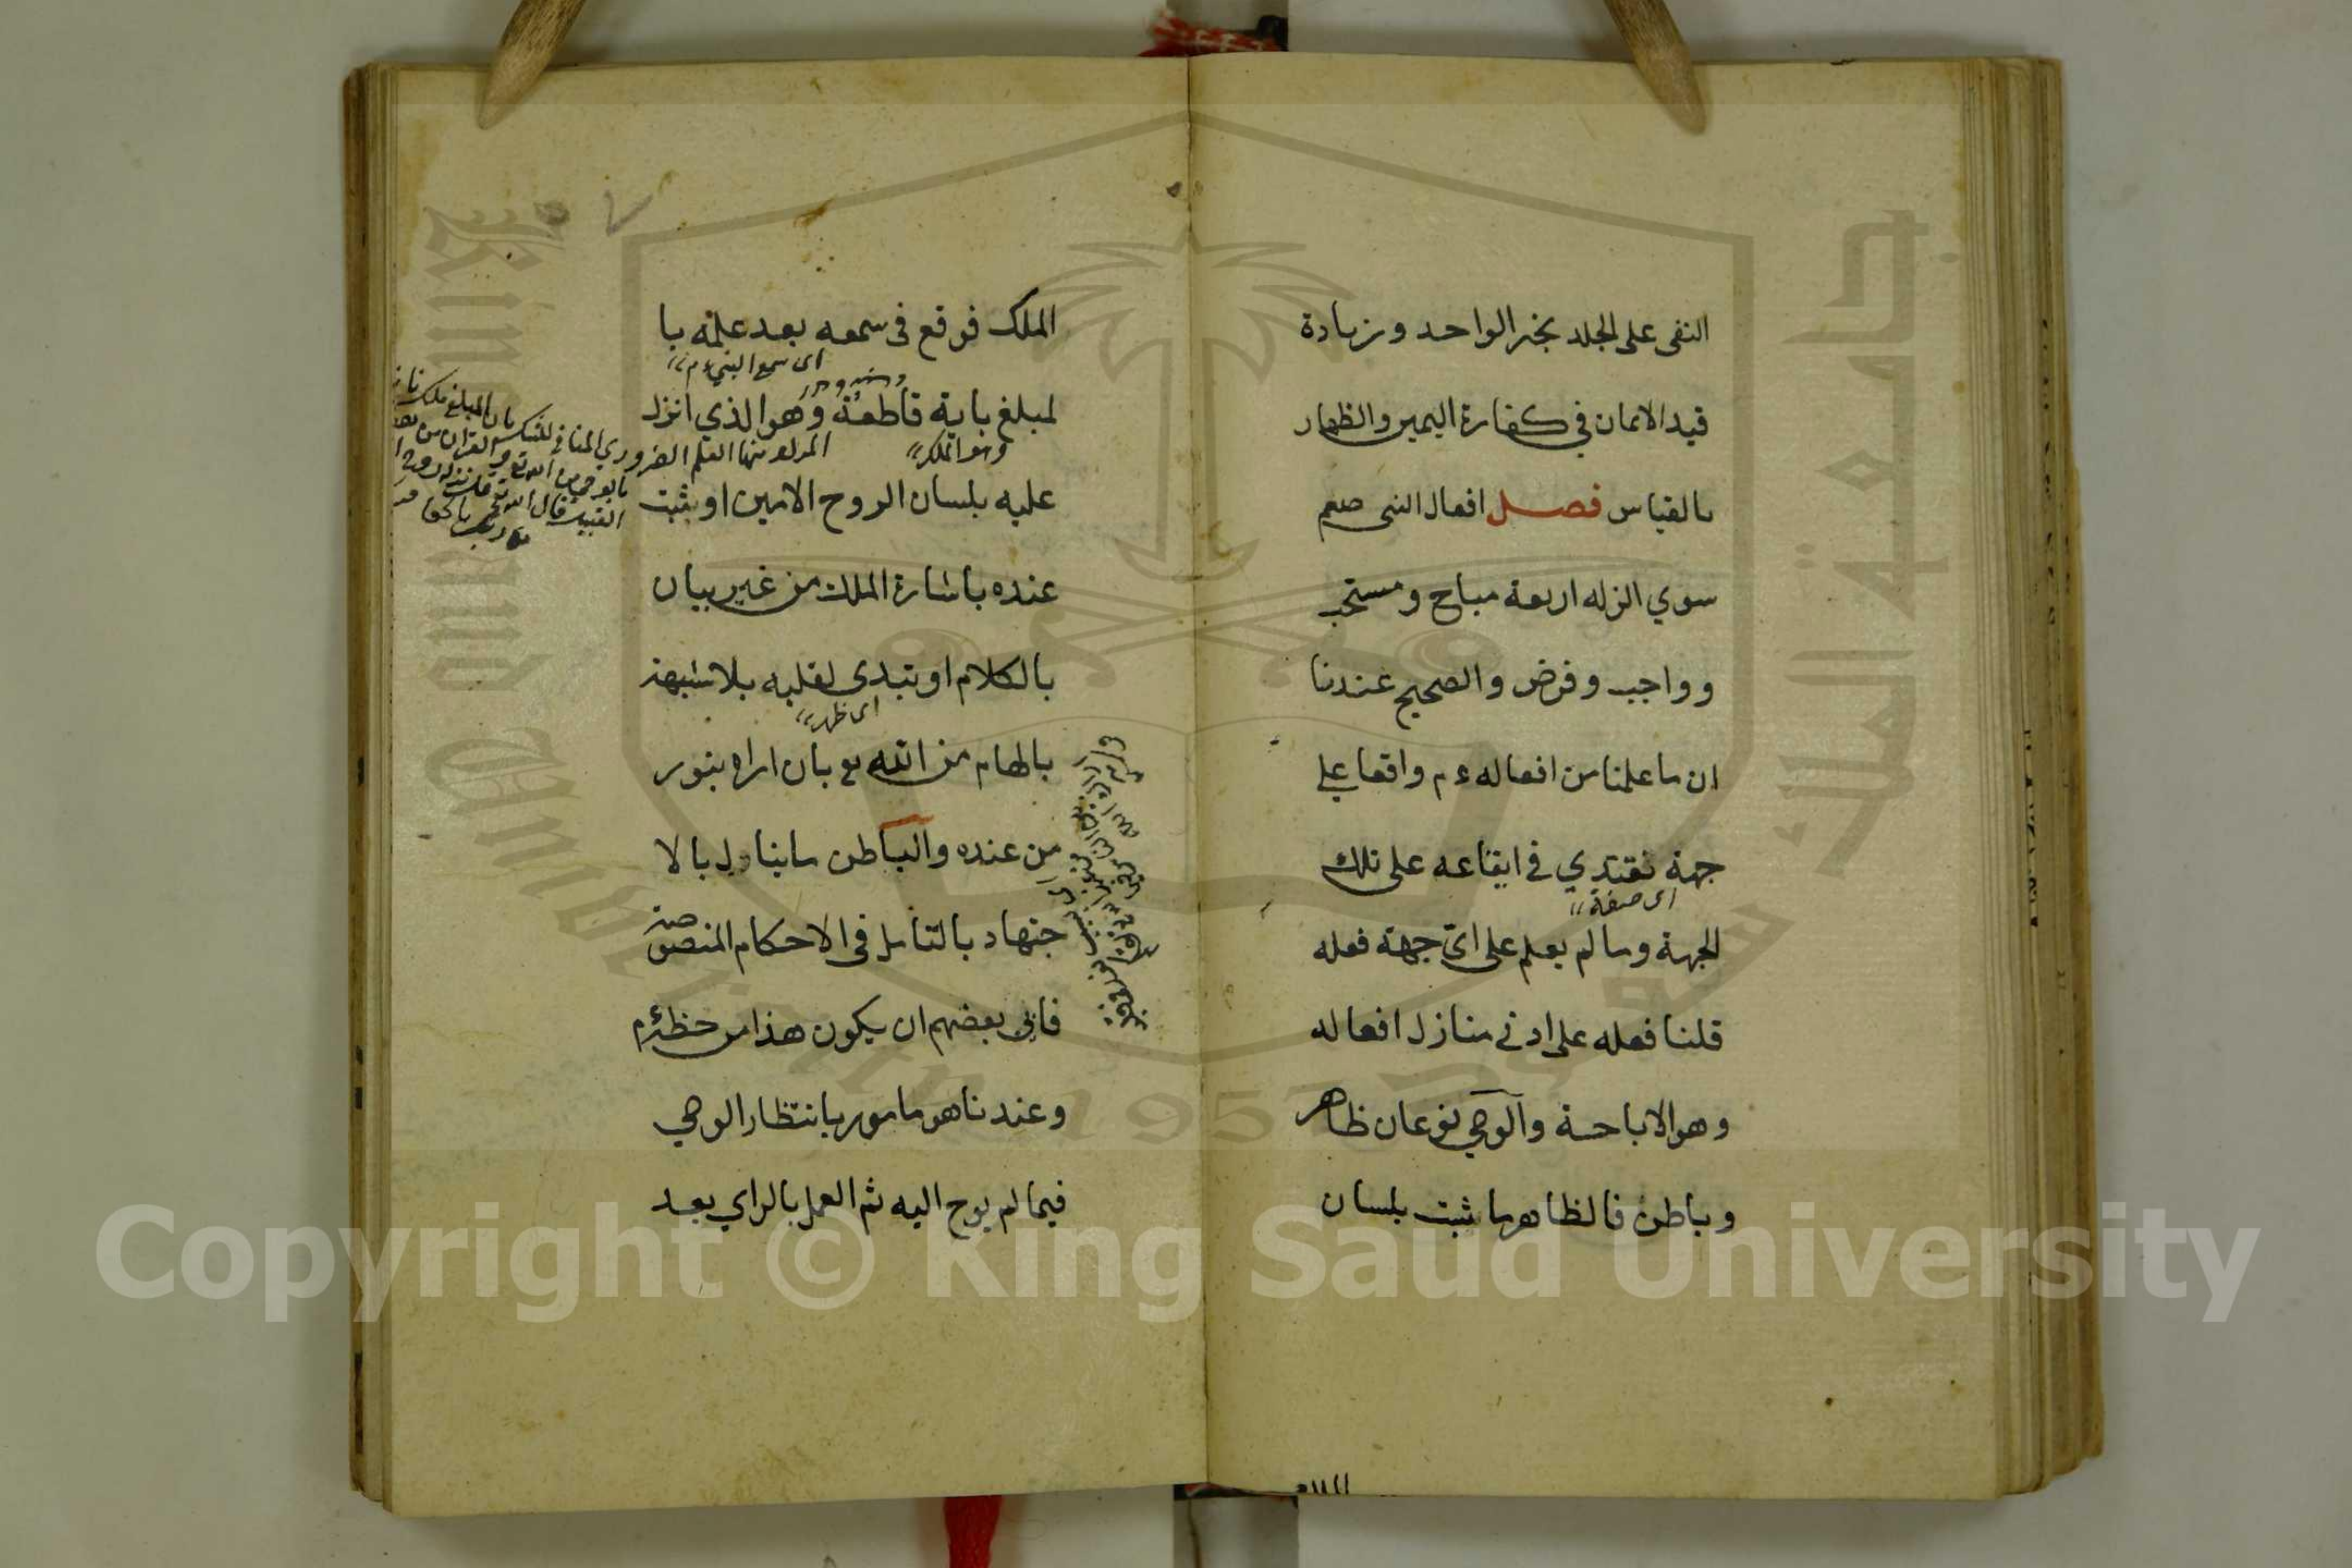 النفى على الجلد بخبر الواحد وزيادة
قيد الايمان في كفارة اليمين والظهار
بالقياس فصل افعال النبى صعم
سوي الزله اربعة مباح ومستحب
وواجب وفرض والصحيح عندنا
ان ما علمنا من افعاله ءم واقعا على
جهة نقتدي في ايقاعه على تلك
اى صفة
الجهة وما لم يعلم على اىّ جهة فعله
قلنا فعله على ادنى منازل افعاله
وهو الاباحة والوحي نوعان ظاهر
وباطن فالظاهر ما ثبت بلسان
الملك
٧
الملك فوقع فى سمعه بعد علمه با
اى سمع النبي ءم
لمبلغ باية قاطعة وهو الذي انزل
وهو الملك
المراد منها العلم الضروري المنافي للشك بان المبلغ ملك
عليه بلسان الروح الامين او يثبت
عنده باشارة الملك من غير بيان
بالكلام او تبدى لقلبه بلا شبهة
اى ظهر
بالهام من الله تع بان اراه بنور
من عنده والباطن ما ينال بالا
جتهاد بالتأمل فى الاحكام المنصوصة
فابى بعضهم ان يكون هذا من حظه ءم
وعندنا هو مامور بانتظار الوحي
فيما لم يوح اليه ثم العمل بالراي بعد
جامعة الملك سعود
King Saud University
1957
Copyright © King Saud University